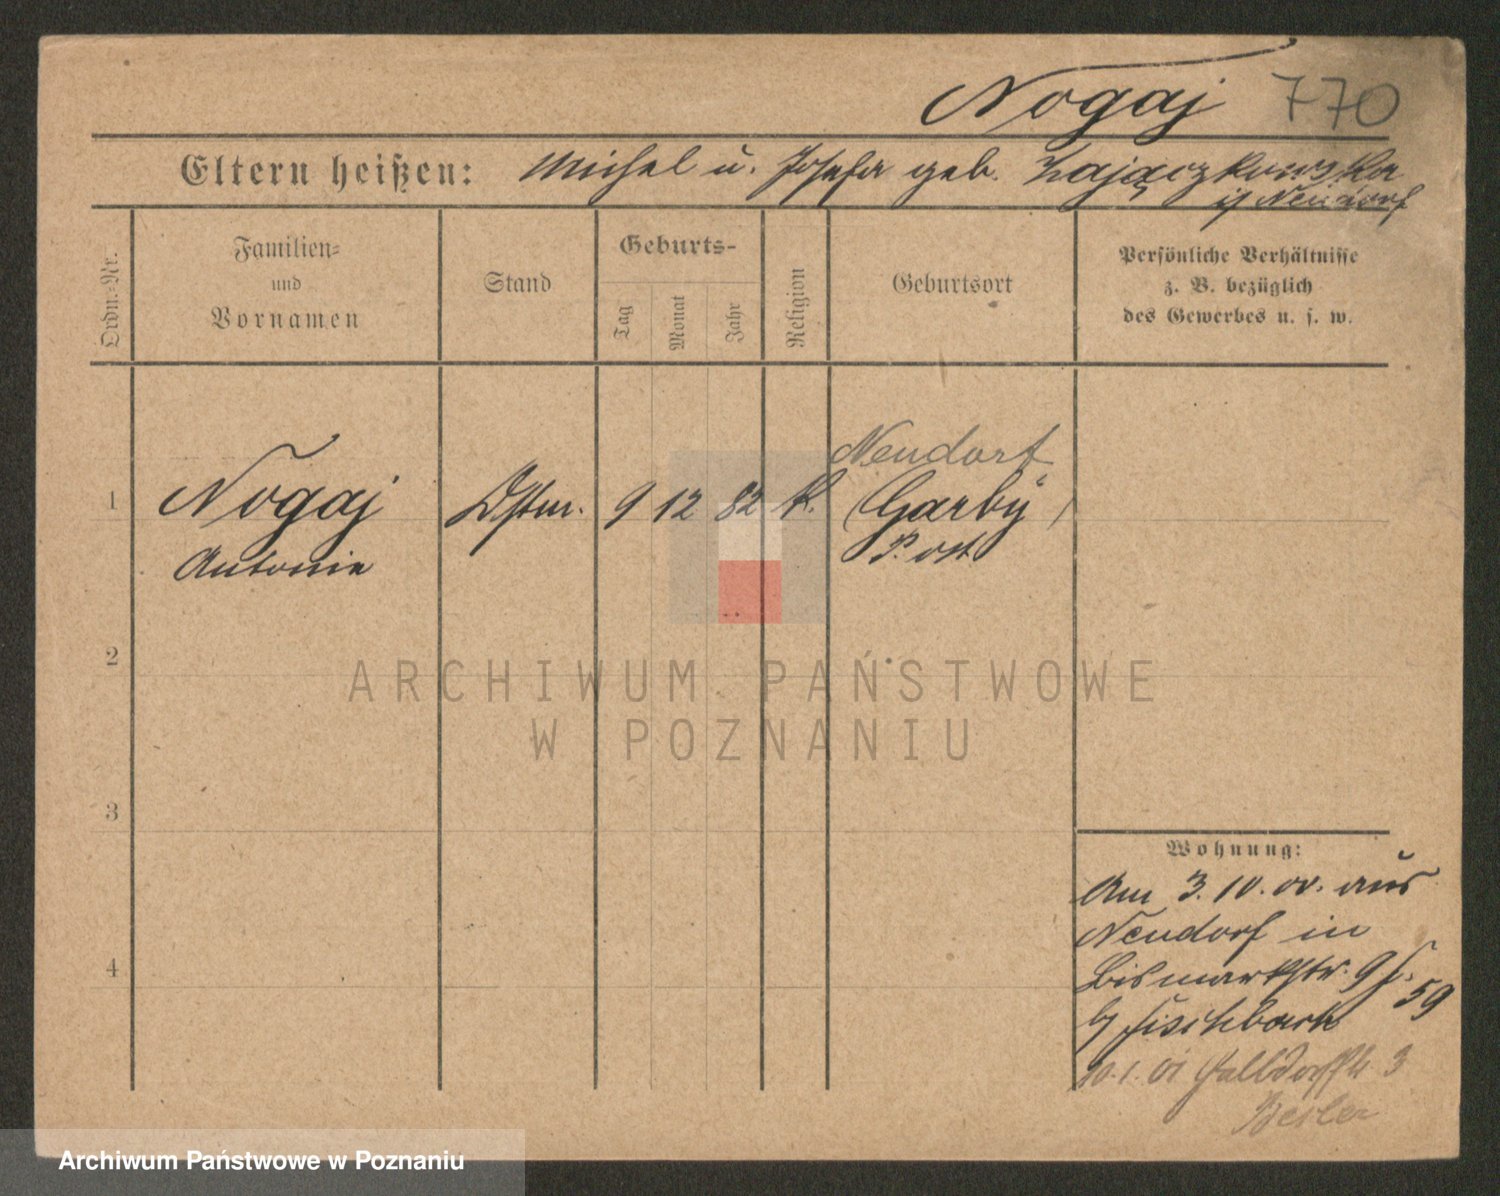 Nogaj 770
Eltern heißen: Michel u. Josefa geb. Zajączkowska
Neudorf
Ordn.-Nr.
Familien-
und
Vornamen
Stand
Geburts-
Tag
Monat
Jahr
Religion
Geburtsort
Persönliche Verhältnisse
z. B. bezüglich
des Gewerbes u. s. w.
Neudorf
1 Nogaj 9 12 82 k. (Garby)
Antonie Post
2
ARCHIWUM PAŃSTWOWE
W POZNANIU
3
Wohnung:
Am 3.10.00. aus
Neudorf in
4
Bismarkstr. 9
b/ Fischbach 59
10.1.01 3
Archiwum Państwowe w Poznaniu